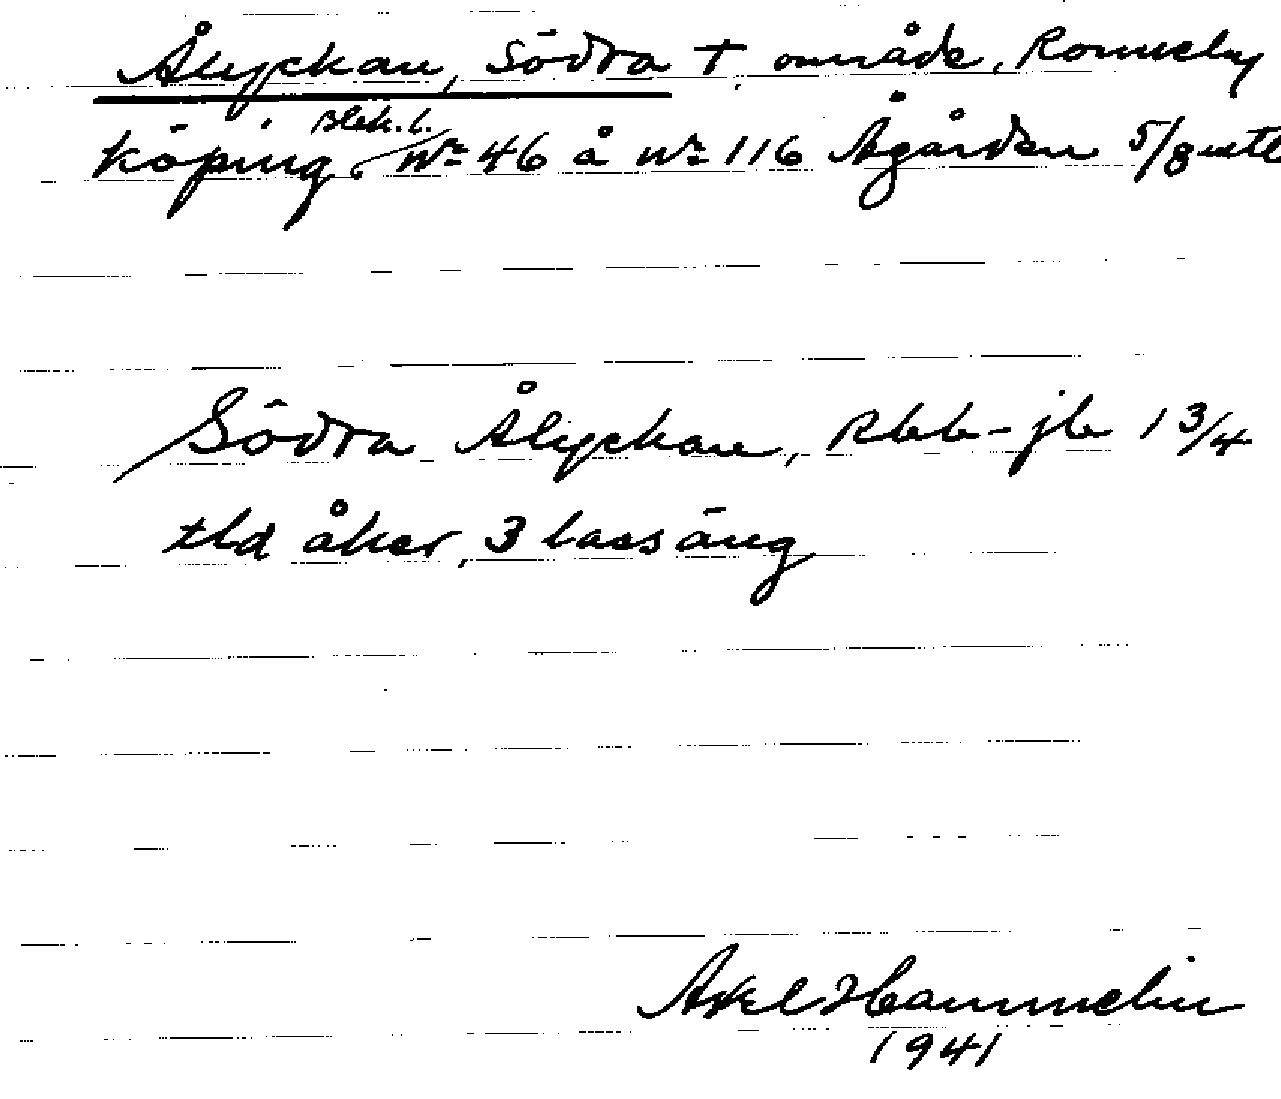 Ålyckan, Södra † område, Ronneby
köping. Blek. l. Nr 46 å nr 116 Ågården 5/8 mtl
Södra Ålyckan, Rbb-jb 1 3/4
tld åker, 3 lass äng
Axel Hammelin
1941